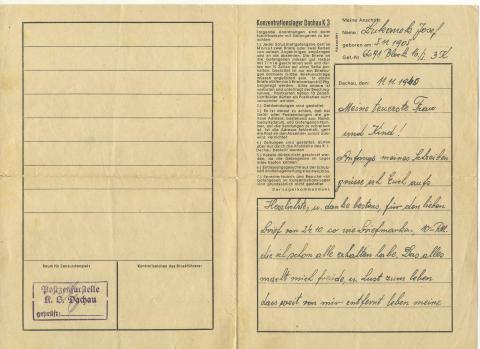 Raum für Zensurstempel:
Kontrollzeichen des Blockführers:
Postzensurstelle
K. L. Dachau
geprüft:
Konzentrationslager Dachau K 3
Folgende Anordnungen sind beim
Schriftverkehr mit Gefangenen zu be-
achten:
1.) Jeder Schutzhaftgefangene darf im
Monat zwei Briefe oder zwei Karten
von seinen Angehörigen empfangen
und an sie absenden. Die Briefe an
die Gefangenen müssen gut lesbar
mit Tinte geschrieben sein und dür-
fen nur 15 Zeilen auf einer Seite ent-
halten. Gestattet ist nur ein Briefbo-
gen normaler Größe. Briefumschläge
müssen ungefüttert sein. In einem
Briefe dürfen nur 5 Briefmarken
beigelegt werden. Alles andere ist
verboten und unterliegt der Beschlag-
nahme. Postkarten haben 10 Zeilen.
Lichtbilder dürfen als Postkarten nicht
verwendet werden.
2.) Geldsendungen sind gestattet
3.) Es ist darauf zu achten, daß bei
Geld- oder Postsendungen die genaue
Adresse, bestehend aus: Name,
Geburtsdatum, und Gefangenen-Num-
mer, auf die Sendungen zu schreiben
ist. Ist die Adresse fehlerhaft, geht
die Post an den Absender zurück oder
wird vernichtet.
4.) Zeitungen sind gestattet, dürfen
aber nur durch die Poststelle des K. L.
Dachau bestellt werden
5.) Pakete dürfen nicht geschickt wer-
den, da die Gefangenen im Lager
alles kaufen können
6.) Entlassungsgesuche aus der Schutz-
haft an die Lagerleitung sind zwecklos
7.) Sprecherlaubnis und Besuche von
Gefangenen im Konzentrations-Lager
sind grundsätzlich nicht gestattet
Der Lagerkommandant
Meine Anschrift:
Name: Josef
geboren am: 5.11.1901
Gef.-Nr. Block 3 K
Dachau, den: 11.11.1940
Meine teuerste Frau
und Kind!
Anfangs meines Schreiben
grüsse ich Euch aufs
Herzlichste, u. danke bestens, für den lieben
Brief von 24.10 so wie Briefmarken, 10-RM.
die ich schon alle erhalten habe. Das alles
macht mich freude, u. Lust zum leben
dass weit von mir entfernt leben meine